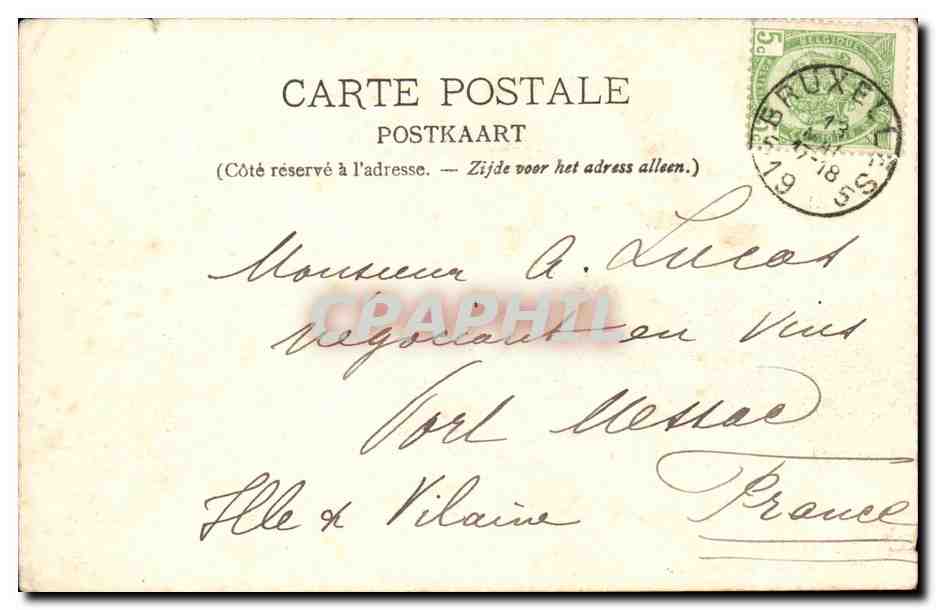 CARTE POSTALE
POSTKAART
(Côté réservé à l'adresse. — Zijde voor het adress alleen.)
BELGIQUE
5c
BRUXELLES 5
13
17-18
19
Monsieur A. Lucas
Négociant en Vins
Port Messac
Ille & Vilaine France
CPAPHIL